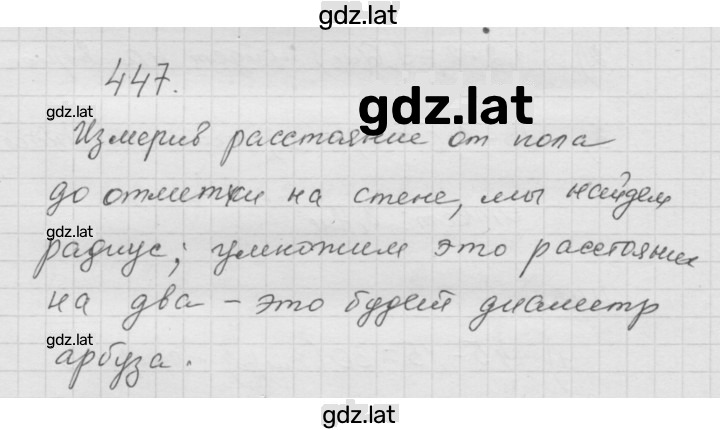 gdz.lat
447.
gdz.lat
gdz.lat
Измерив расстояние от пола
до отметки на стене, мы найдем
gdz.lat
радиус; умножим это расстояние
на два – это будет диаметр
gdz.lat
арбуза.
gdz.lat